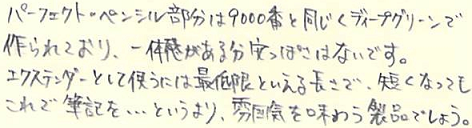 パーフェクト・ペンシル部分は9000番と同じくディープグリーンで
作られており、一体感がある分安っぽさはないです。
エクステンダーとして使うには最低限といえる長さで、短くなっても
これで筆記を…というより、雰囲気を味わう製品でしょう。